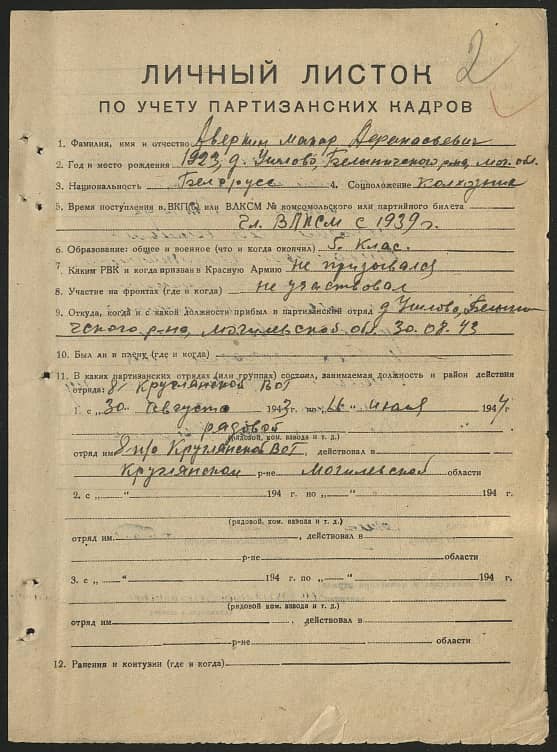 2
ЛИЧНЫЙ ЛИСТОК
ПО УЧЕТУ ПАРТИЗАНСКИХ КАДРОВ
1. Фамилия, имя и отчество Аверкин Макар Афанасьевич
2. Год и место рождения 1923, д. Ушлово, Белыничского р-на, Мог. обл.
3. Национальность Белорусс 4. Соцположение Колхозник
5. Время поступления в ВКП(б) или ВЛКСМ № комсомольского или партийного билета
чл. ВЛКСМ с 1939 г.
6. Образование: общее и военное (что и когда окончил) 5 клас.
7. Каким РВК и когда призван в Красную Армию не призывался
8. Участие на фронтах (где и когда) не участвовал
9. Откуда, когда и с какой должности прибыл в партизанский отряд д Ушлово, Белыни
чского р-на, Могилевской обл. 30.08.43
10. Был ли в плену (где и когда)
11. В каких партизанских отрядах (или группах) состоял, занимаемая должность и район действия
отряда: 8 Круглянской ВОГ
1. с „30“ Августа 1943 г. по „16“ июля 1944 г
рядовой
(рядовой, ком. взвода и т. д.)
отряд им 8 п/о Круглянской ВОГ, действовал в
Круглянском р-не Могилевской области
2. с „ “ 194 г. по „ “ 194 г
(рядовой, ком. взвода и т. д.)
отряд им. , действовал в
р-не области
3. с „ “ 194 г. по „ “ 194 г.
(рядовой, ком. взвода и т. д.)
отряд им , действовал в
р-не области
12. Ранения и контузии (где и когда)